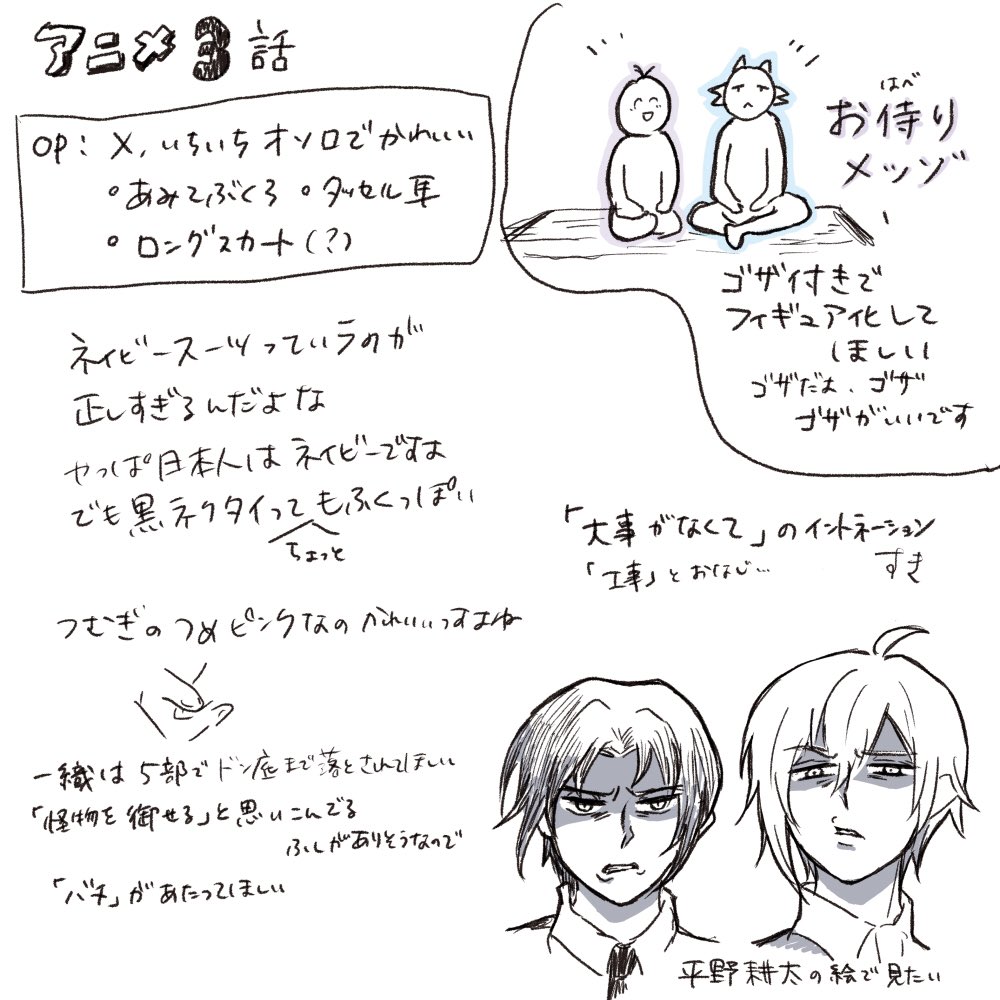 アニメ3話
OP: メ、いちいちオソロでかわいい
•あみてぶくろ •タッセル耳
•ロングスカート(?)
はべ
お侍り
メッゾ
ゴザ付きで
フィギュア化して
ほしい
ゴザだよ、ゴザ
ゴザがいいです
ネイビースーツっていうのが
正しすぎるんだよな
やっぱ日本人はネイビーですよ
でも黒ネクタイってもふくっぽい
ちょっと
「大事がなくて」のイントネーション
すき
「工事」とおなじ…
つむぎのつめピンクなのかわいいっすよね
一織は5部でドン底まで落とされてほしい
「怪物を御せる」と思いこんでる
ふしがありそうなので
「バチ」があたってほしい
平野耕太の絵で見たい